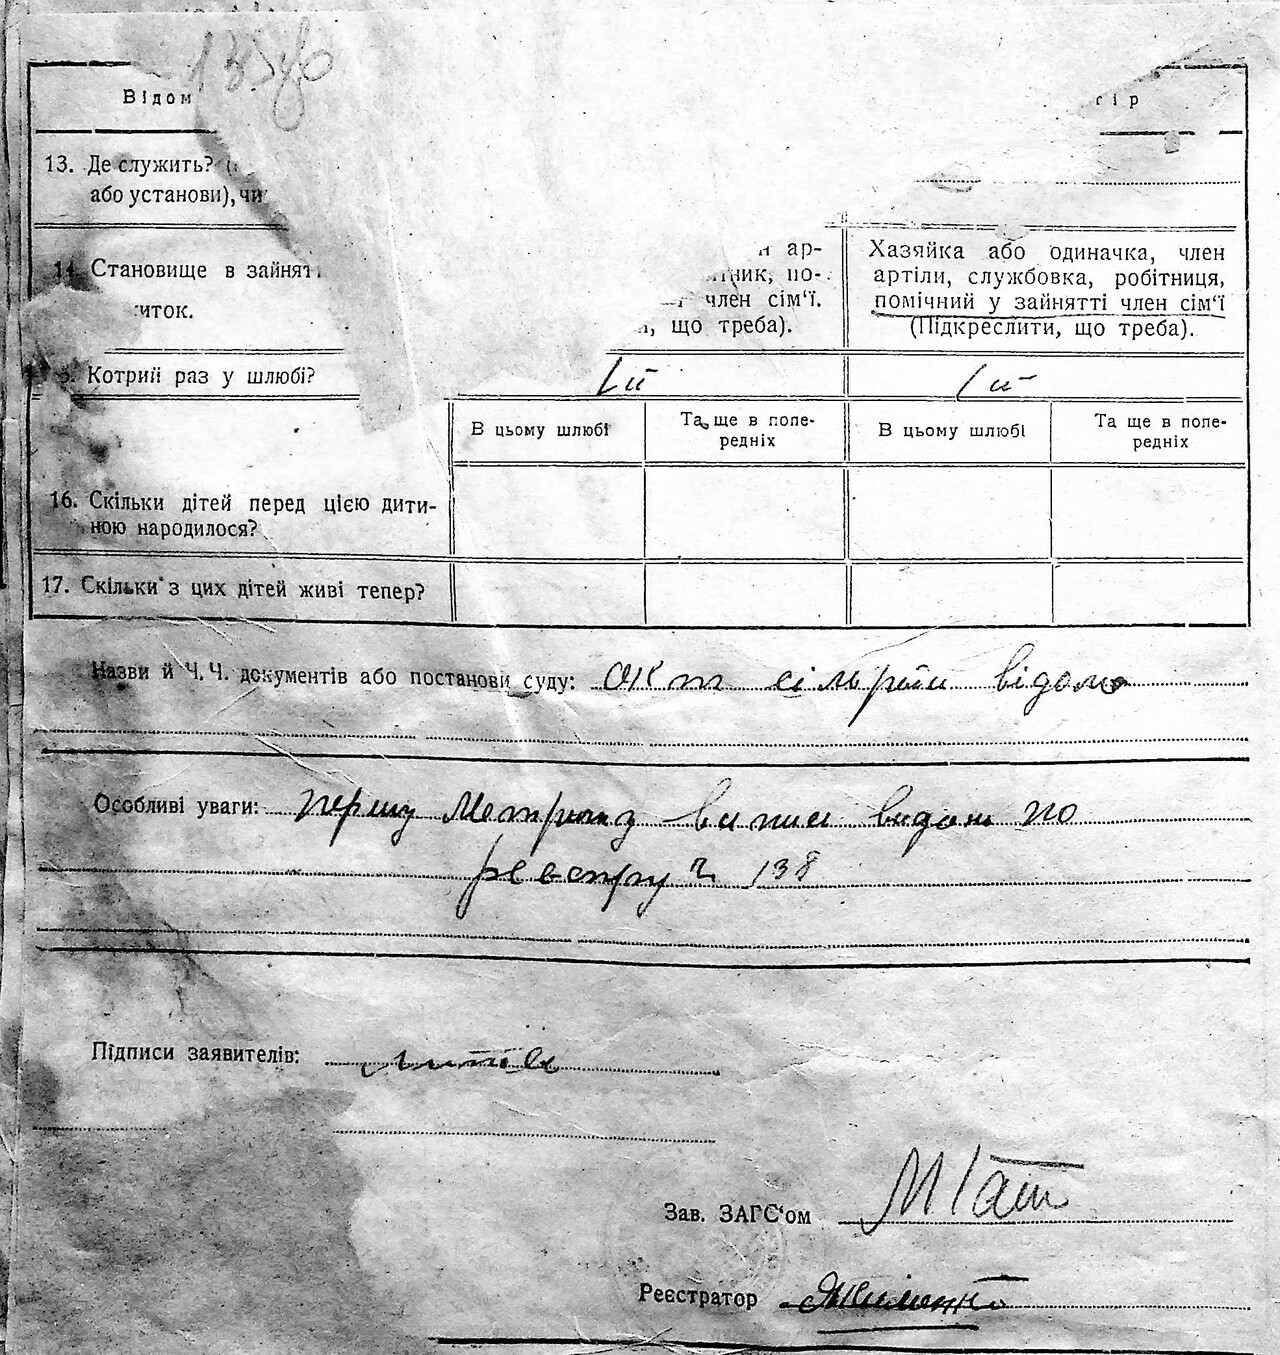 Відом
13. Де служить?
або установи), чи
14. Становище в занят
иток.
ар-
ник, по-
член сім‘ї.
, що треба).
Хазяйка або одиначка, член
артіли, службовка, робітниця,
помічний у зайнятті член сім‘ї
(Підкреслити, що треба).
Котрий раз у шлюбі?
І ий
І ий
В цьому шлюбі
Та ще в попе-
редніх
В цьому шлюбі
Та ще в попе-
редніх
16. Скільки дітей перед цією дити-
ною народилося?
17. Скільки з цих дітей живі тепер?
Назви й Ч.Ч. документів або постанови суду: Акт сільради відомо
Особливі уваги: першу Метричну випис видано по
реєстру ч 138
Підписи заявителів:
Зав. ЗАГС‘ом
Реєстратор